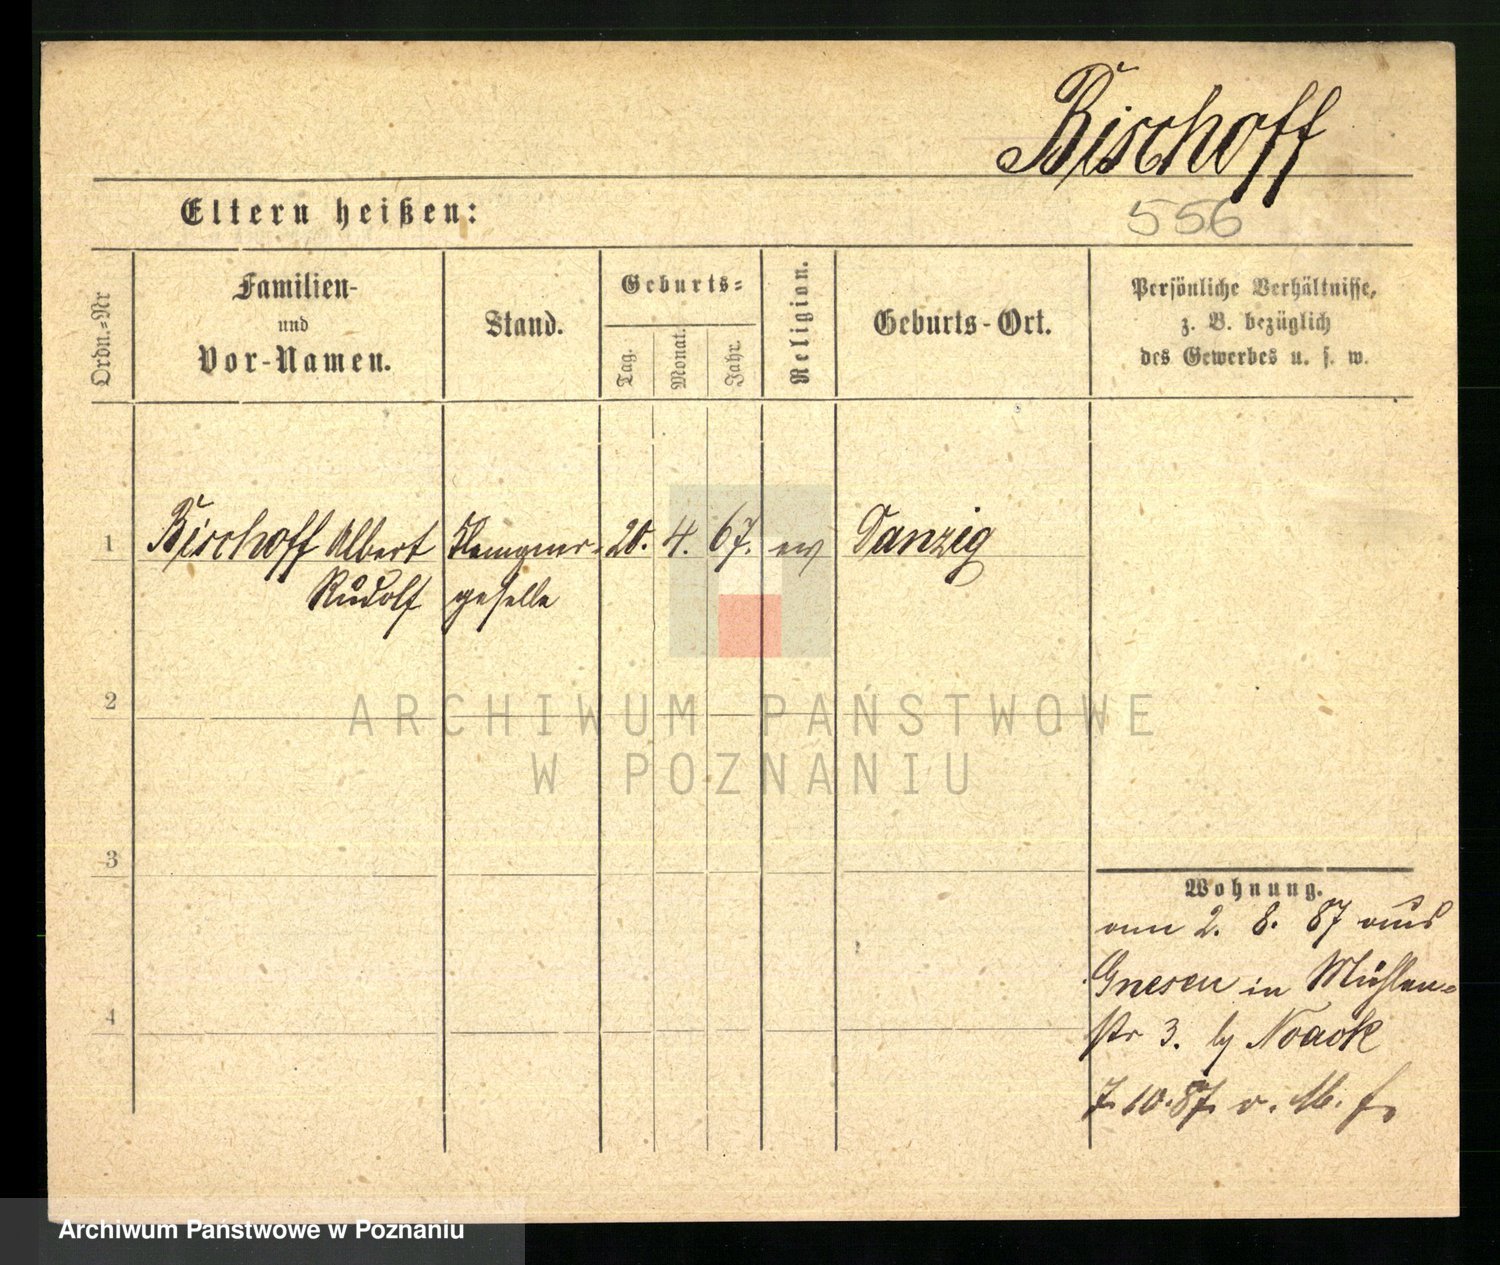 Bischoff
Eltern heißen:
556
Ordn.=Nr
Familien-
und
Vor-Namen.
Stand.
Geburts=
Tag.
Monat.
Jahr.
Religion.
Geburts-Ort.
Persönliche Verhältnisse,
z. B. bezüglich
des Gewerbes u. s. w.
1
Bischoff Albert
Rudolf
Klempner-
geselle
20.
4.
67.
ev
Danzig
2
3
4
Wohnung.
am 2. 8. 87 aus
Gnesen in Mühlen=
str 3. by Noack
7.10.87. v.
ARCHIWUM PAŃSTWOWE
W POZNANIU
Archiwum Państwowe w Poznaniu